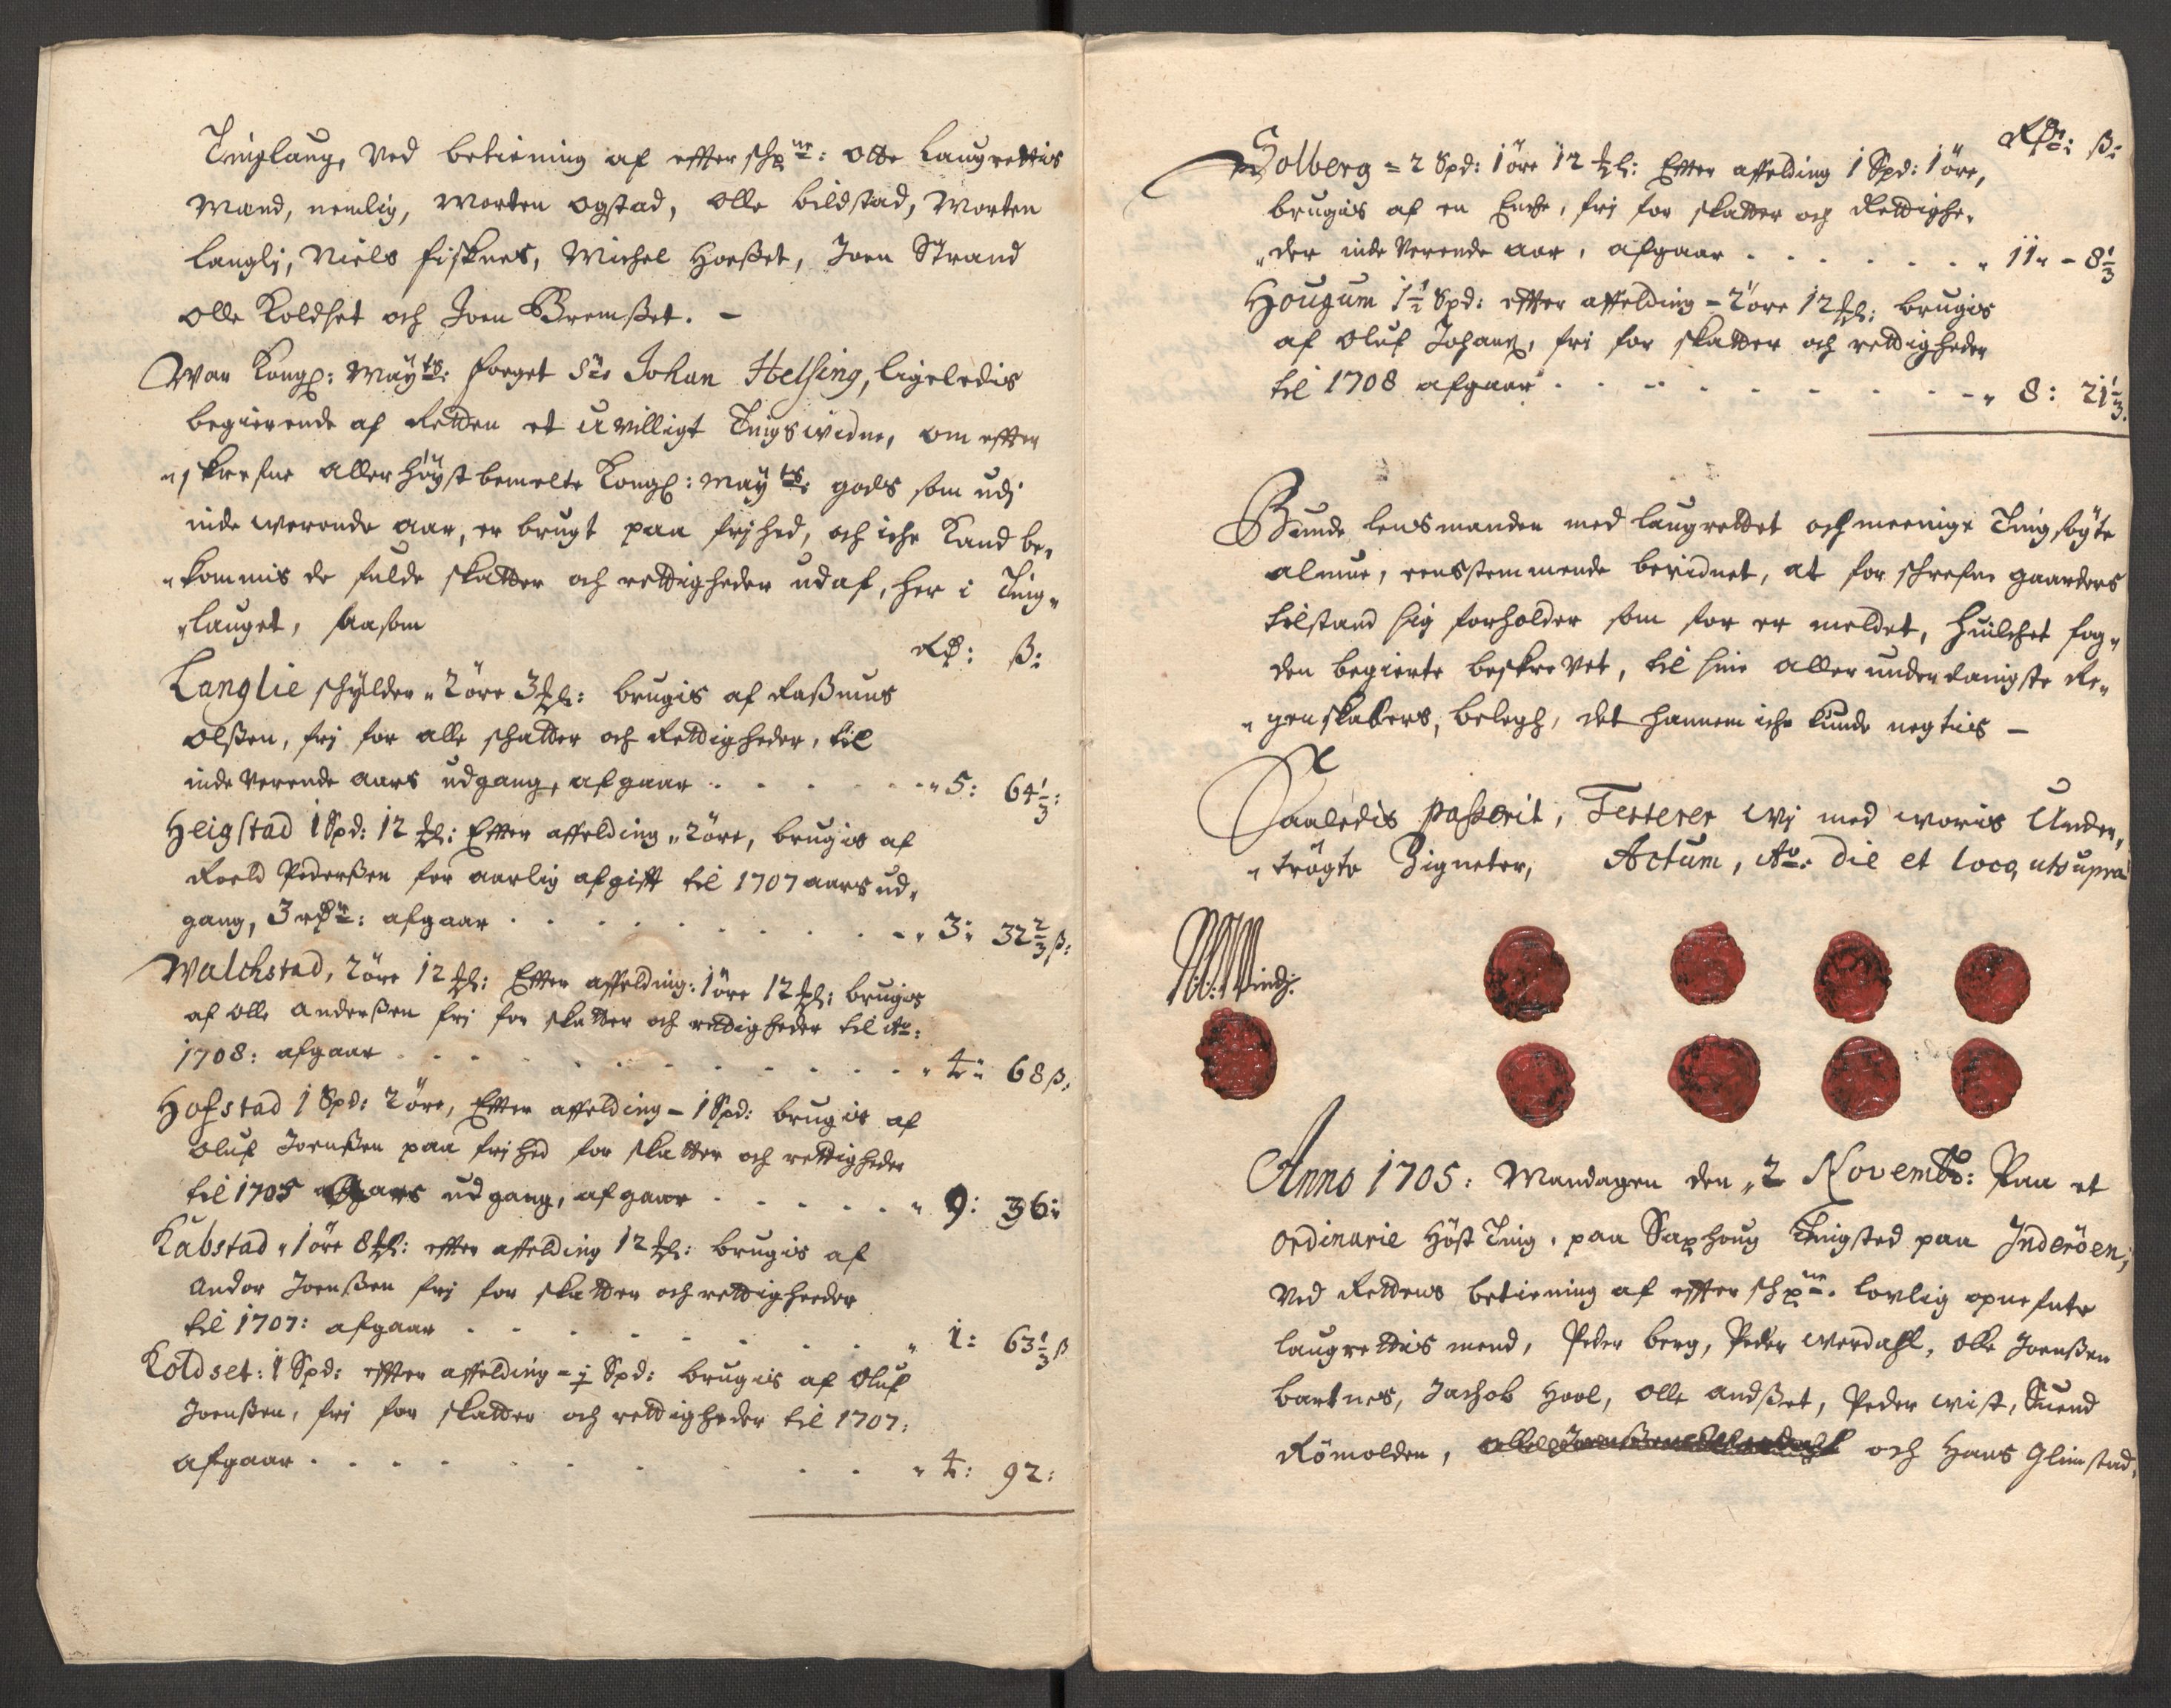 Tinglaug, Ved betiening af effterschr:ne: otte Laugrettis
Mænd, nemlig, Morten Ogstad, Olle bildstad, Morten
Langli, Niels fisknes, Michel Hoeßet, Joen Strand
Olle Koldset och Joen Bremßet. –
War Kongl: May:ts: foeget Sr: Johan Helsing, ligeledis
begierende af Retten et Uvilligt Tingswidne, om effter
skrefne allerhøyst bemelte Kongl: May:ts: gods som udj
inde werende aar, er brugt paa frjhed, och iche Kand be„
„kommis de fulde skatter och rettigheder udaf, her i Ting„
„lauget, saasom
Rd: ß:
Langlie schylder „ 2 öre 3 ml: brugis af Raßmus
Olßen, frj for alle schatter och Rettigheder, til
inde Verende aars udgang, afgaar . . . „ 5: 64 1/3:
Heigstad 1 Spd: 12 ml: Effter affelding „ 2 öre, brugis af
Roeld Pederßen for aarlig afgifft til 1707 aars ud„
gang, 3 rdr: afgaar . . . „ 3„ 32 2/3 ß:
Walchstad, 2 öre 12 ml: Effter affelding: 1 öre 12 ml: brugis
af Olle Anderßen frj for skatter och rettigheder til Ao:
1708: afgaar . . . „ 4„ 68 ß:
Hofstad 1 Spd: 2 öre, Effter affelding – 1 Spd: brugis af
Oluf Joenßen paa frjhed for skatter och rettigheder
til 1705 aars udgang, afgaar . . . „ 9: 36:
Kabstad „ 1 öre 8 ml: effter affelding 12 ml: brugis af
Andor Joenßen frj for skatter och rettigheeder
til 1707: afgaar . . . „ 1: 63 1/3 ß
Koldset: 1 Spd: effter affelding = 1/2 Spd: brugis af Oluf
Joenßen, frj for skatter och rettigheder til 1707:
afgaar . . . „ 4: 92:
Rdr: ß:
Solberg = 2 Spd: 1 öre 12 ml: Effter affelding 1 Spd: 1 öre,
brugis af en Encke, frj for skatter och Rettighe„
„der inde Verende aar, afgaar . . . „ 11„ – 8 1/3
Hougum 1 1/2 Spd: effter affelding – 2 öre 12 ml: brugis
af Oluf Johanß, fri for skatter och rettigheder
til 1708 afgaar . . . „ 8: 21 1/3.
Bunde lensmanden med laugrettet och meenige Tingsøgte
almue, eenstemmende bevidnet, at forschrefne gaarders
tilstand sig forholder som for er meldet, Huilchet fog„
den begierte beskrevet, til sine allerunderdanigste Re„
„genskabers, belegh, det hannem iche Kunde negtis –
Saaledis passerit, Testerer Wj med woris Under„
„trögte Zigneter, Actum, Ao: die et loco, ut supra
Anno 1705: Mandagen den „ 2 Novembr: Paa et
ordinarie Höst Ting, paa Saxhoug Tingsted paa Inderöen,
Ved Rettens betiening af effterschr:ne: lovlig opnefnte
laugrettis mend, Peder berg, Peder Werdahl, Olle Joenßen
bartnes, Jachob Hool, Olle Andßet, Peder Wist, Suend
Römolden, och Hans Glimstad,